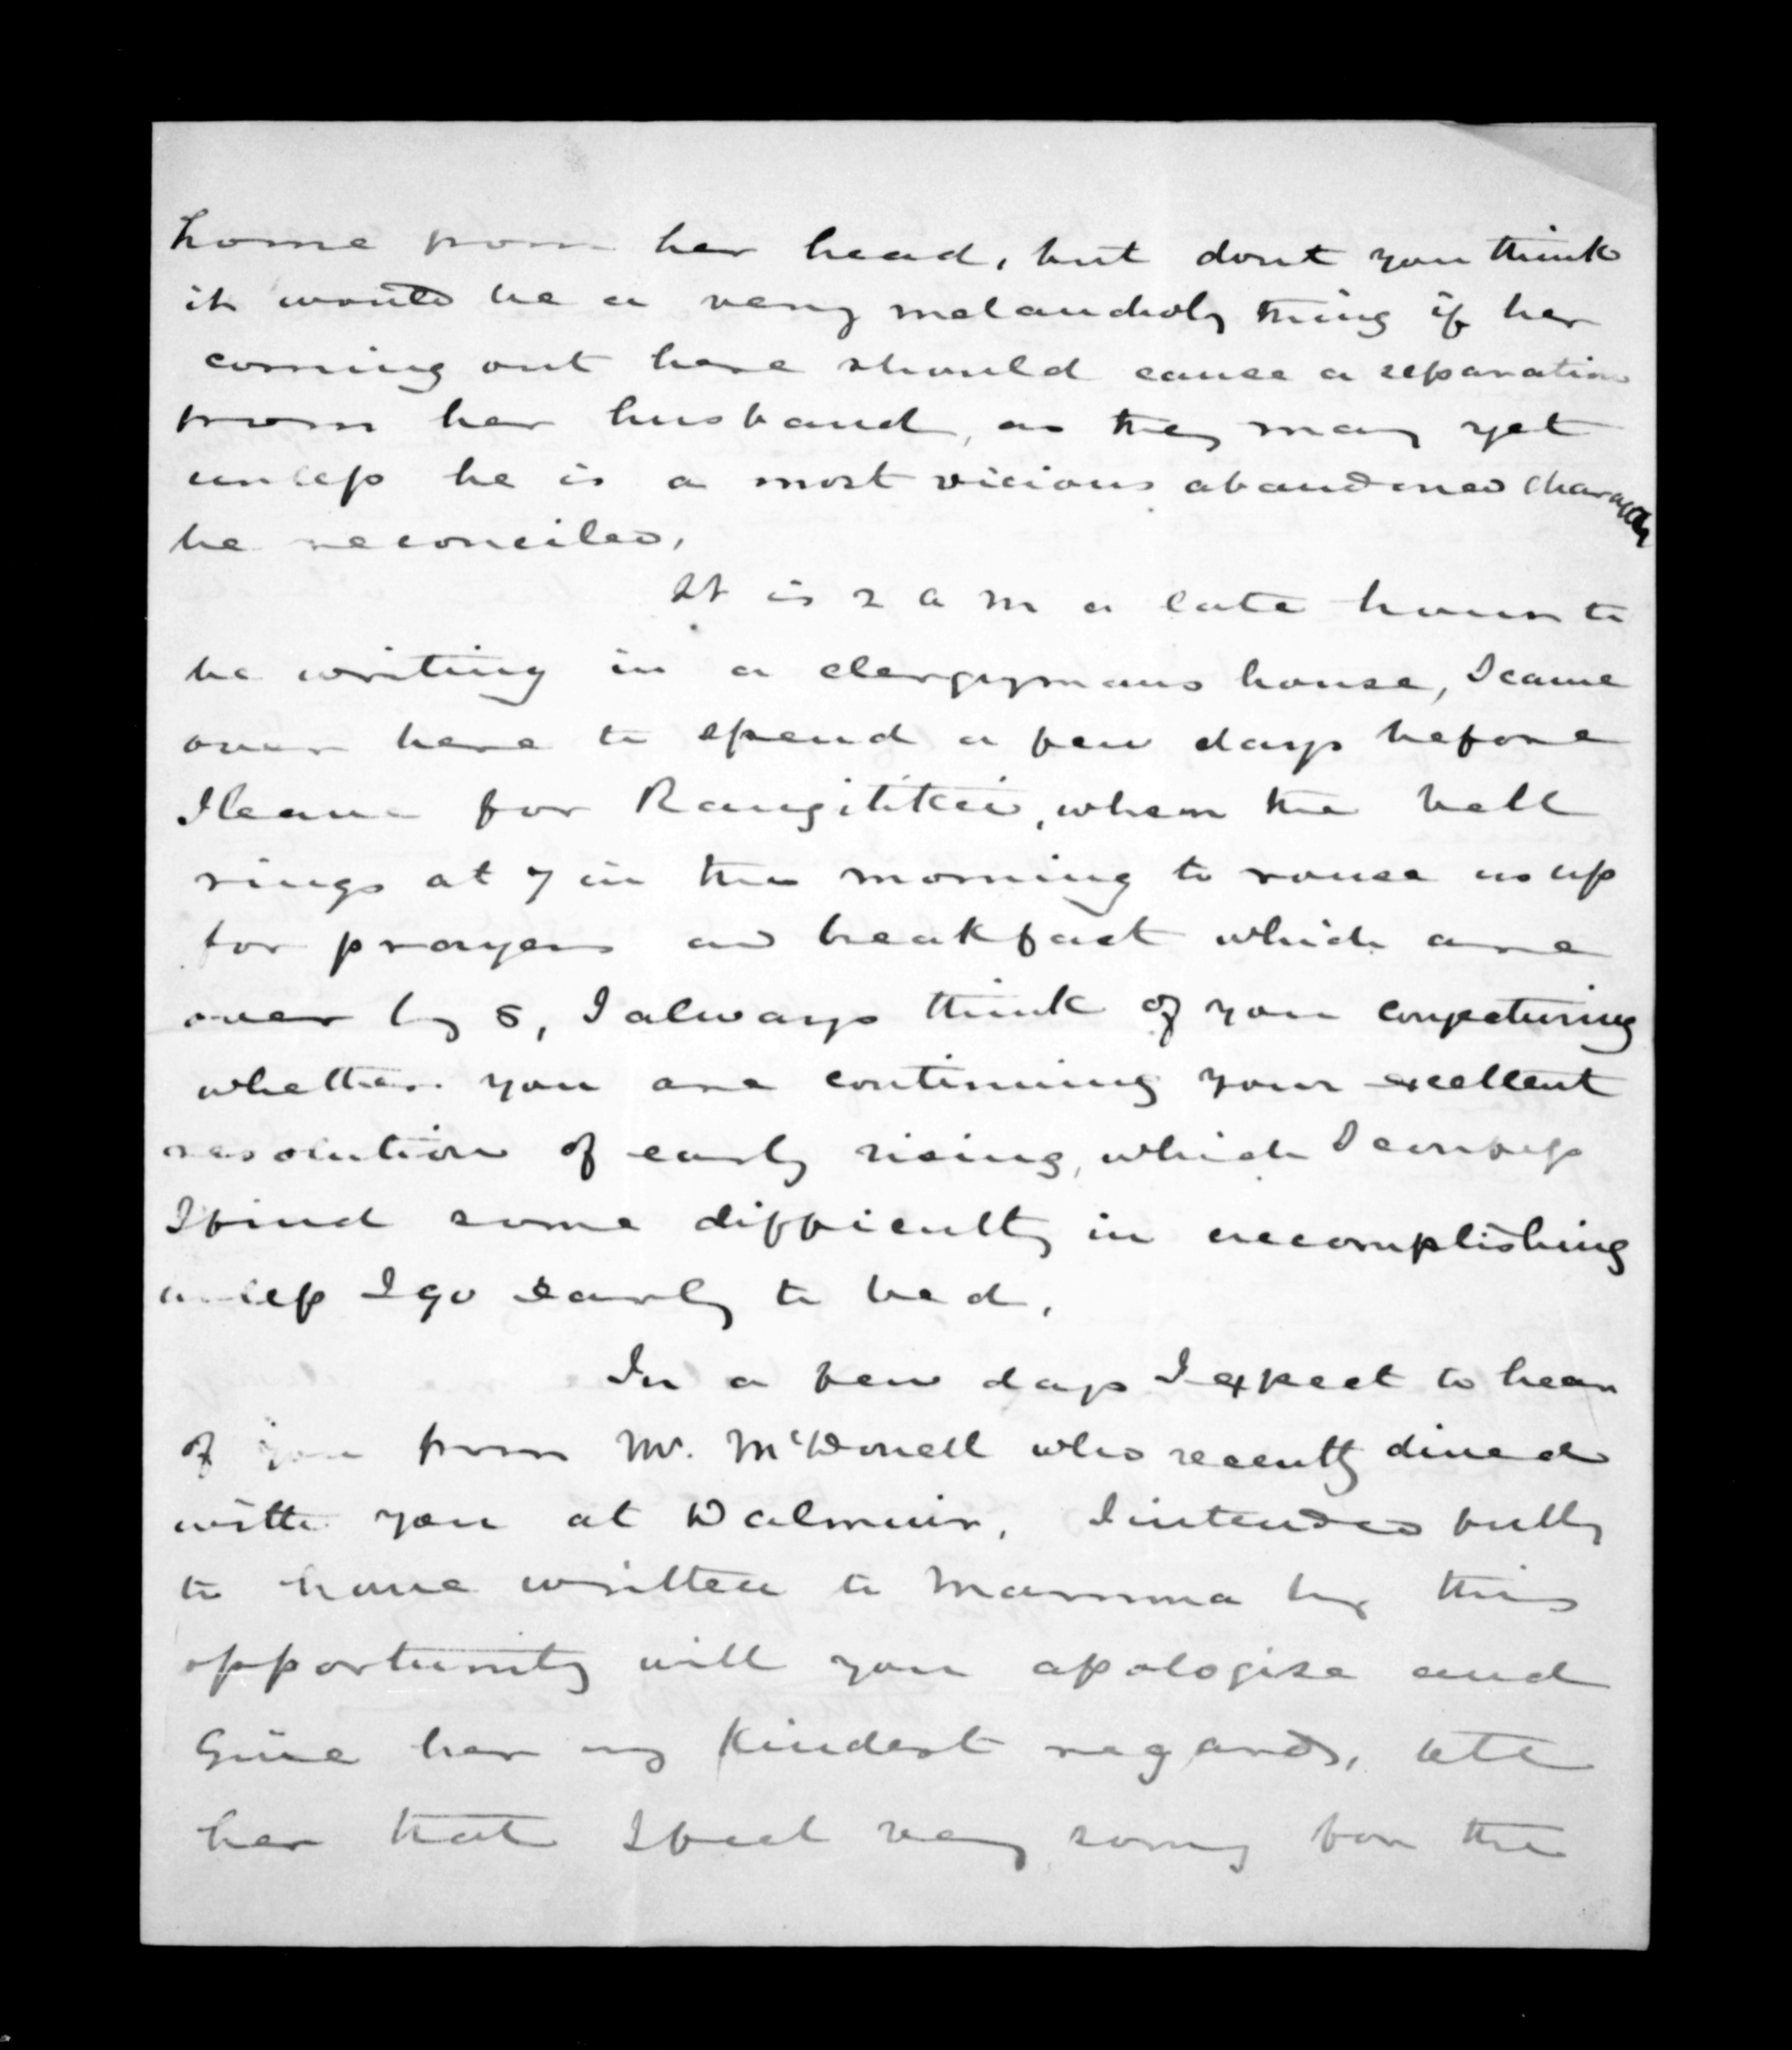 home from her head, but dont you think
it would be a very melancholy thing if her
coming out here should cause a separation
from her husband, as they may yet
unless he is a most vicious abandoned character
be reconciled,
It is 2 a m a late hour to
be writing in a clergymans house, I came
over here to spend a few days before
I leave for Rangitikei, when the bell
rings at 7 in the morning to rouse us up
for prayers and breakfast which are
over by 8, I always think of you conjecturing
whether you are continuing your excellent
resolution of early rising, which I confess
I find some difficulty in accomplishing
unless I go early to bed,
In a few days I expect to hear
of you from Mr. McDonell who recently dined
with you at Dalmuir, I intended fully
to have written to Mamma by this
opportunity will you apologise and
Give her my kindest regards, tell
her that I feel very sorry for the